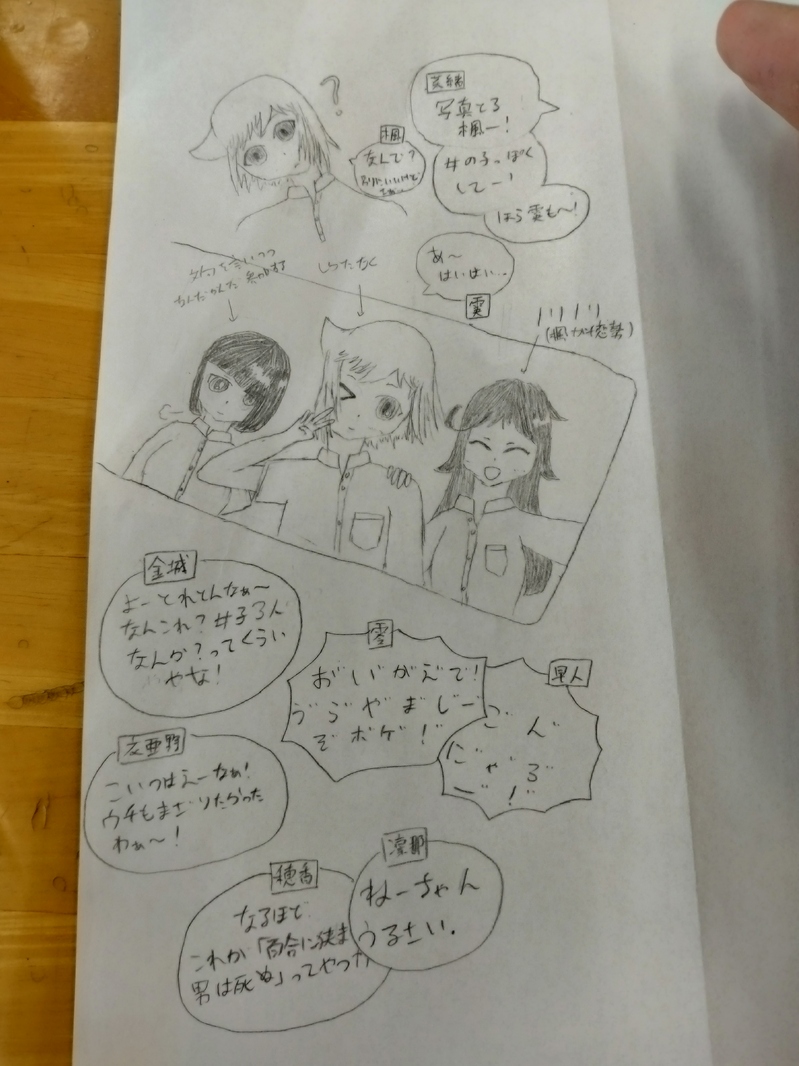 写真とる
楓ー!
女の子っぽく
してー!
ほら雫も〜!
?
楓
なんで?
あ〜
はいはい…
雫
文句を言いつつ
なんだかんだ参加する
しらたなく
ノリノリ
金城
よーとれとんなぁ〜
なんこれ?女子3人
なんか?ってくらい
やな!
零
お゛い゛がえ゛で!
う゛ら゛や゛ま゛じー
ぞボゲ!゛
隼人
ご ん
に゛ゃ ろ゛
ご゛!
衣亜野
こいつはえーなぁ!
ウチもまざりたかった
わぁ〜!
穂香
なるほど
これが「百合に挟ま
男は死ぬ」ってやつか
凛那
ねーちゃん
うるさい.